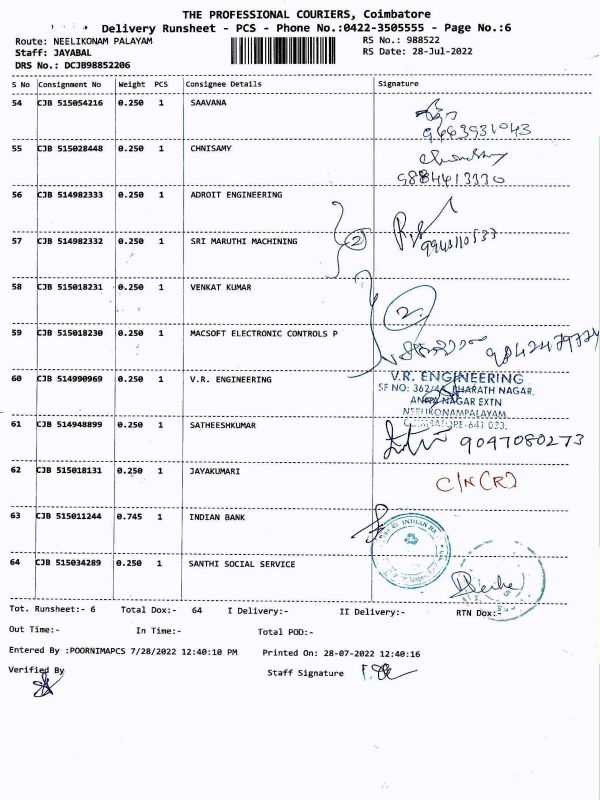 THE PROFESSIONAL COURIERS, Coimbatore
Delivery Runsheet - PCS - Phone No.:0422-3505555 - Page No.:6
Route: NEELIKONAM PALAYAM RS No.: 988522
Staff: JAYABAL RS Date: 28-Jul-2022
DRS No.: DCJB98852206
S No Consignment No Weight PCS Consignee Details Signature
54 CJB 515054216 0.250 1 SAAVANA
9443931043
55 CJB 515028448 0.250 1 CHNISAMY
9884413330
56 CJB 514982333 0.250 1 ADROIT ENGINEERING
57 CJB 514982332 0.250 1 SRI MARUTHI MACHINING 2
58 CJB 515018231 0.250 1 VENKAT KUMAR
2
59 CJB 515018230 0.250 1 MACSOFT ELECTRONIC CONTROLS P
60 CJB 514990969 0.250 1 V.R. ENGINEERING V.R. ENGINEERING
SF NO: 362/ BHARATH NAGAR,
ANNA NAGAR EXTN
NEELIKONAMPALAYAM
COIMBATORE-641 033.
61 CJB 514948899 0.250 1 SATHEESHKUMAR 9047080273
62 CJB 515018131 0.250 1 JAYAKUMARI C/N(R)
63 CJB 515011244 0.745 1 INDIAN BANK INDIAN
64 CJB 515034289 0.250 1 SANTHI SOCIAL SERVICE
Tot. Runsheet:- 6 Total Dox:- 64 I Delivery:- II Delivery:- RTN Dox:-
Out Time:- In Time:- Total POD:-
Entered By :POORNIMAPCS 7/28/2022 12:40:10 PM Printed On: 28-07-2022 12:40:16
Verified By Staff Signature